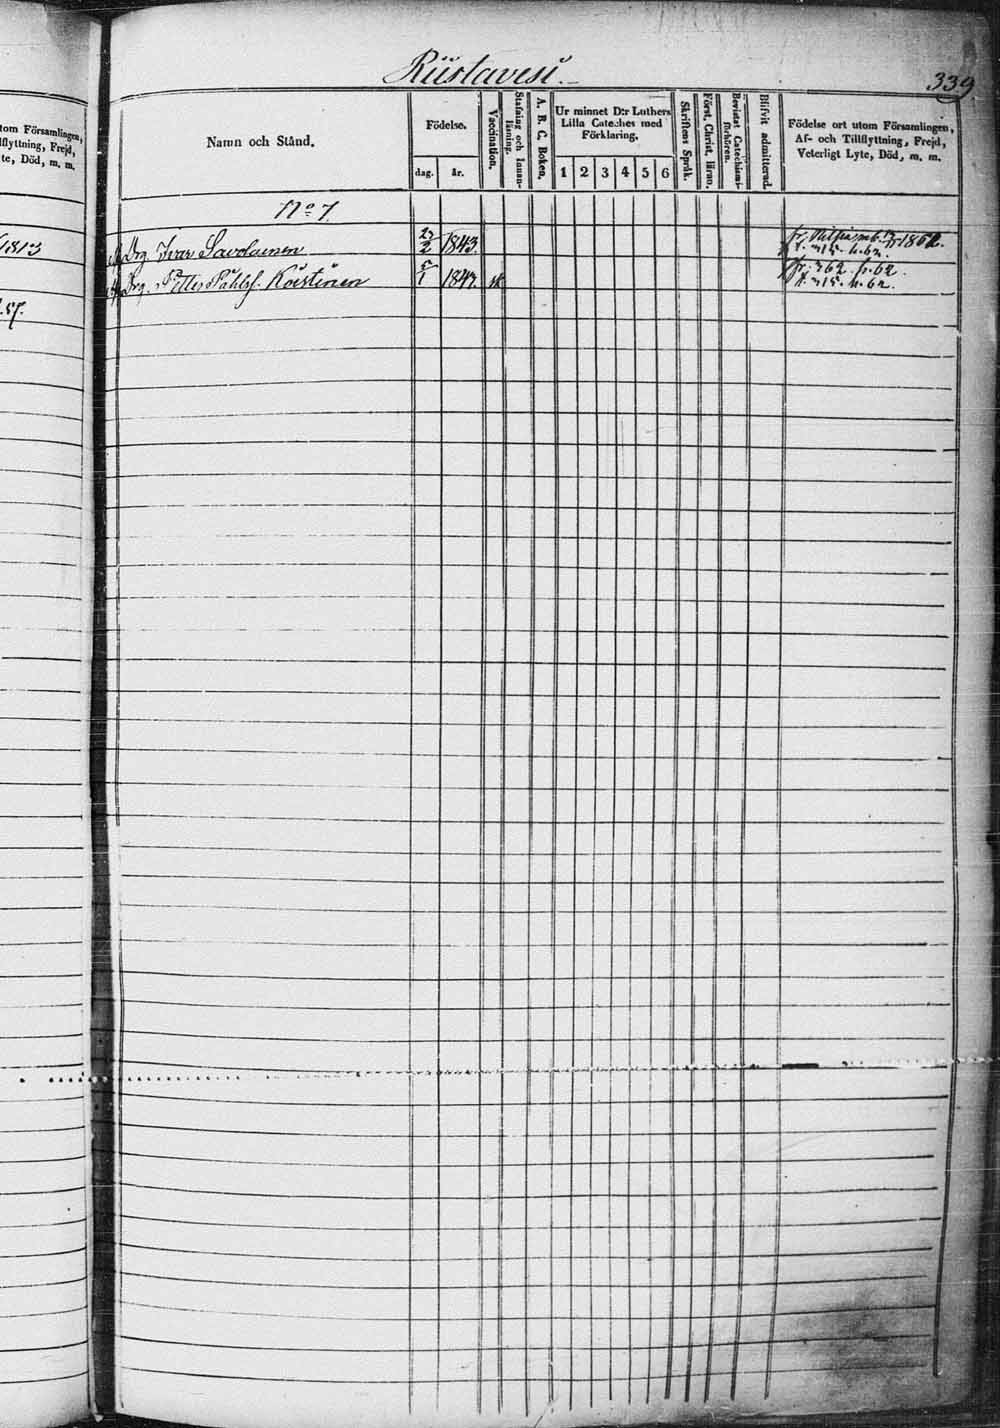 Riistavesi.
339
utom Församlingen,
Tillflyttning, Frejd,
Lyte, Död, m. m.
Namn och Stånd.
Födelse.
dag. år.
Vaccination.
Stafning och Innanläsning.
A. B. C. Boken.
Ur minnet D:r Luthers
Lilla Cateches med
Förklaring.
1 2 3 4 5 6
Skriftens Språk.
Först. Christ. läran.
Bevistat Catechismi-
förhören.
Blifvit admitterad.
Födelse ort utom Församlingen,
Af- och Tillflyttning, Frejd,
Veterligt Lyte, Död, m. m.
No 7
1813
Drg Ivar Savolainen 23/2 1843. 1862.
t. 315. h. 62.
Drg. Petter Påhlss. Koistinen 5/1 1843.
fr. 362. h. 62.
t. 315. h. 62.
57.